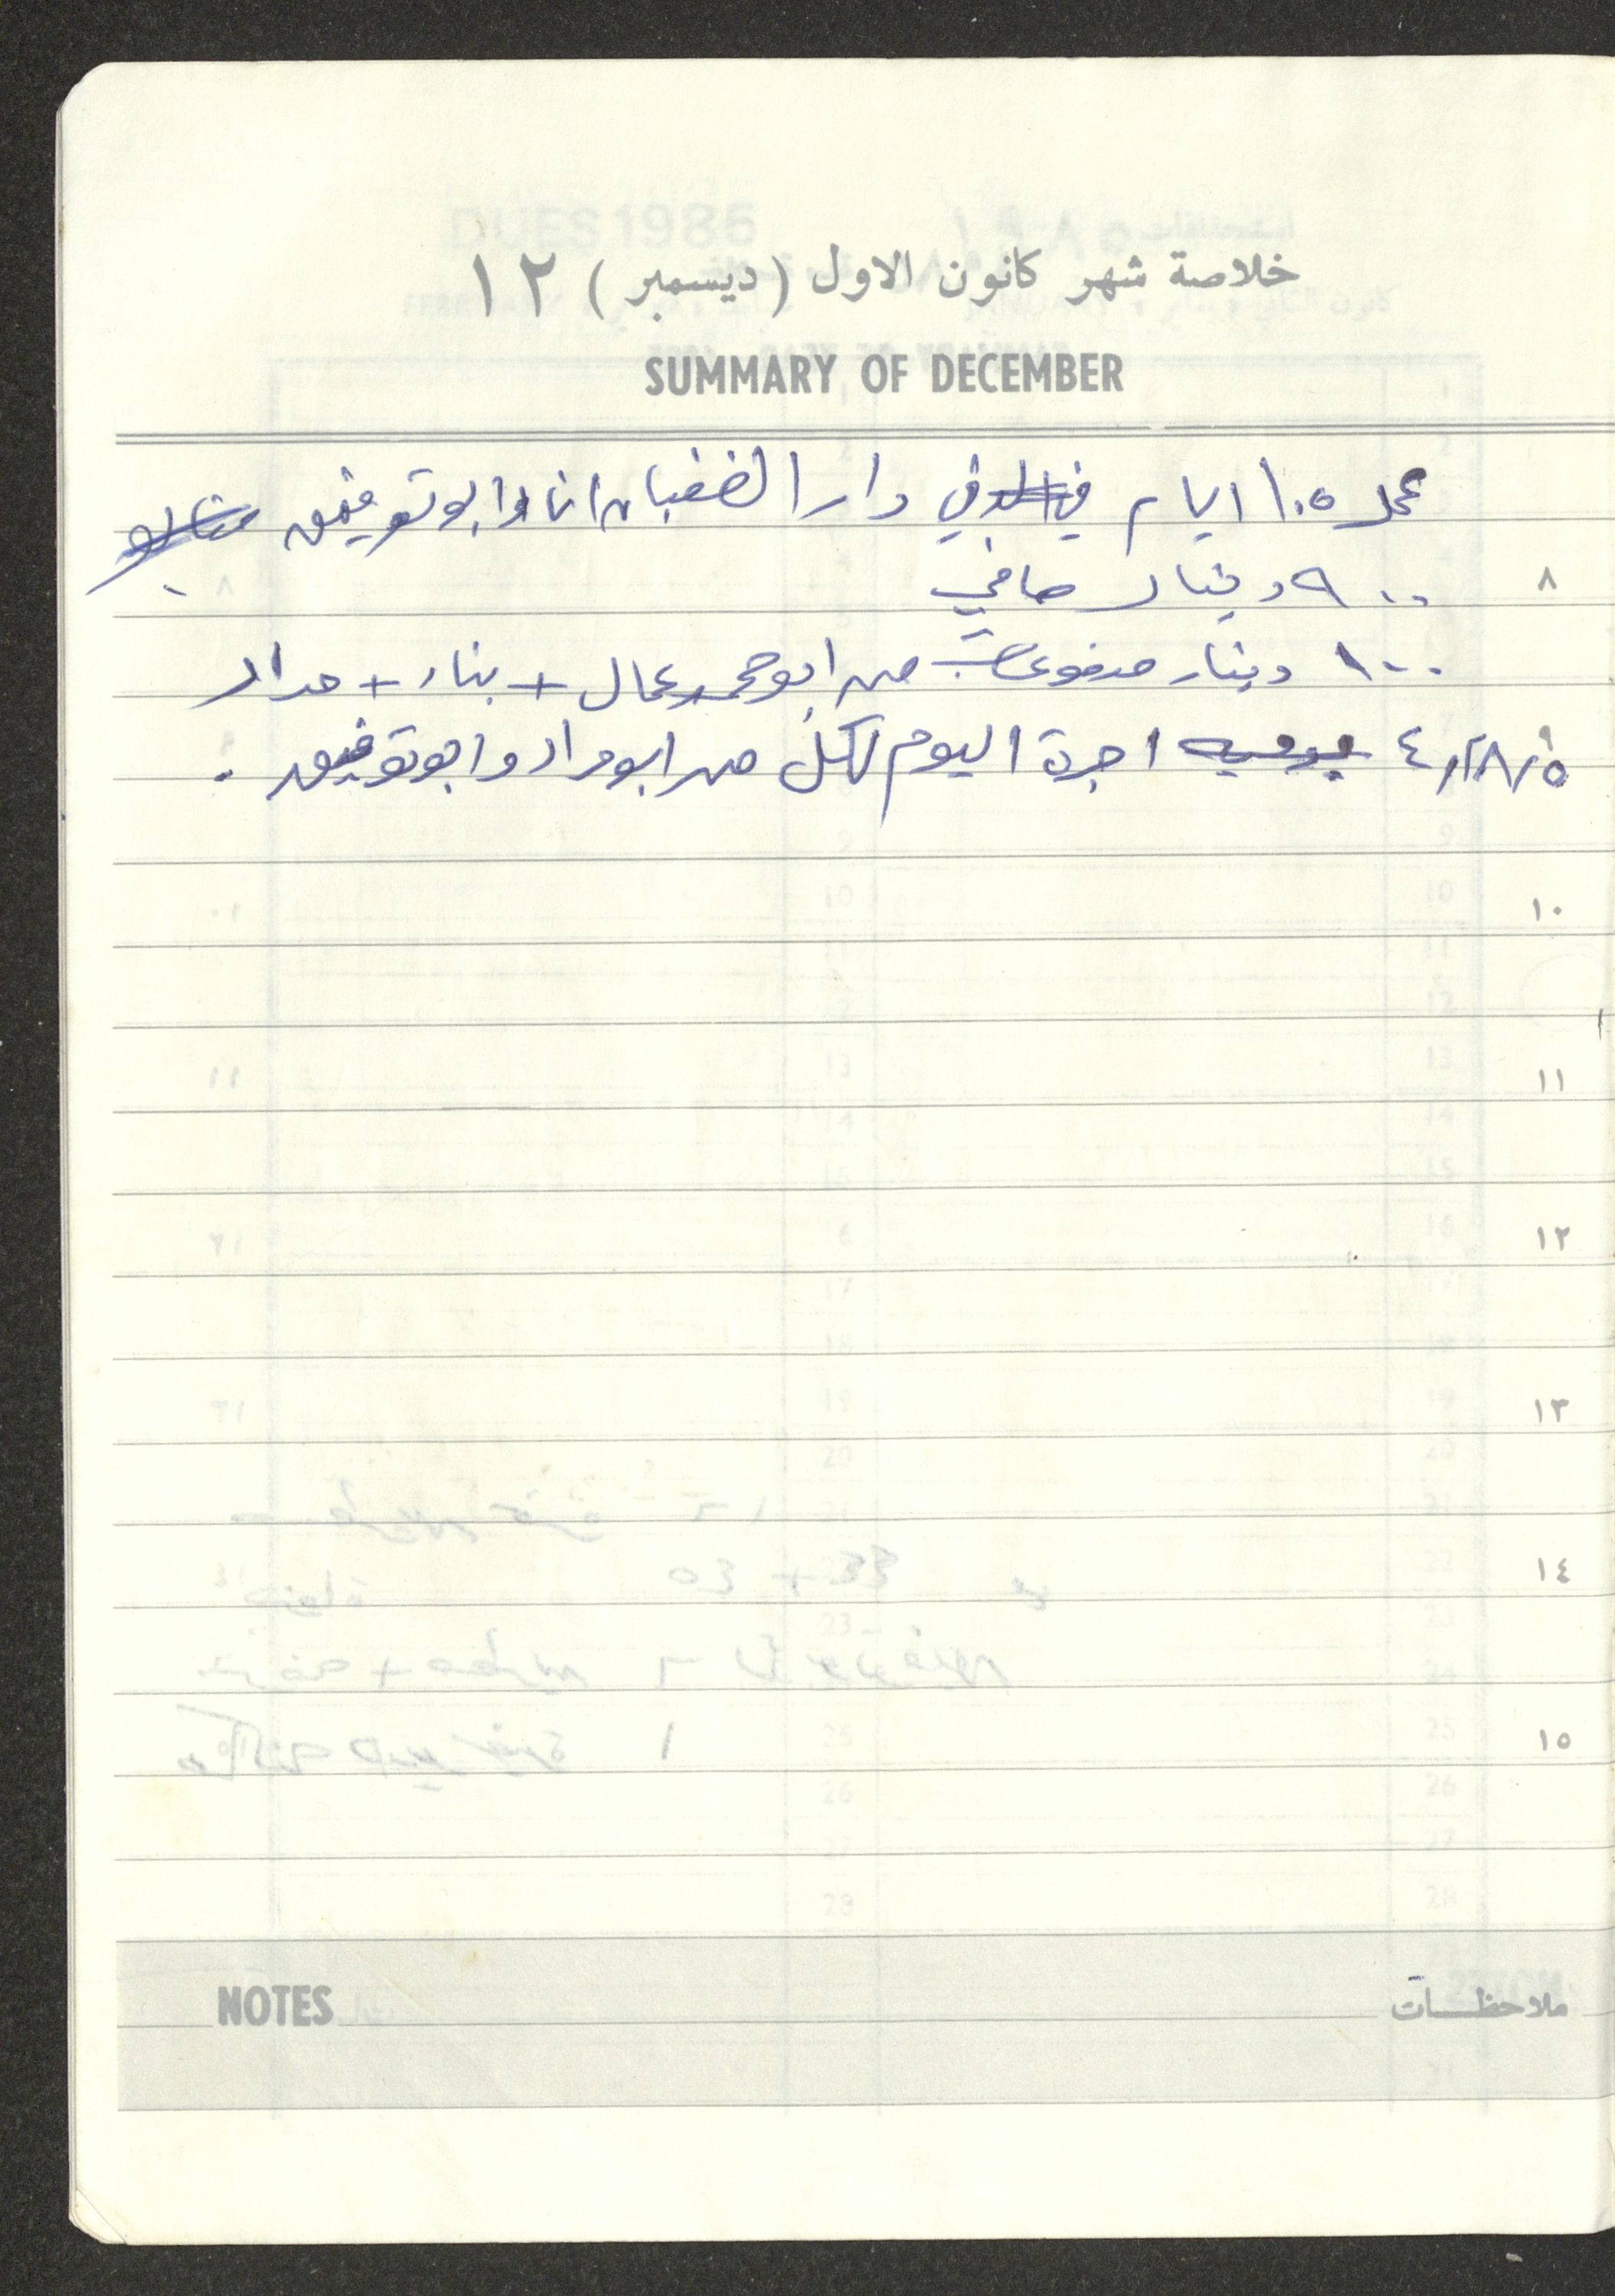 خلاصة شهر كانون الاول (ديسمبر) ١٢
SUMMARY OF DECEMBER
عمل ١٠٥ ايام في دار الغضبان انا وابو توفيق
٩٠٠ دينار صافي
١٠٠ دينار مدفوعات من ابو حمد عمال + بناء + مداد
اجرة اليوم لكل من ابو مراد وابو توفيق .
٨
١٠
١١
١٢
١٣
١٤
١٥
NOTES ملاحظات